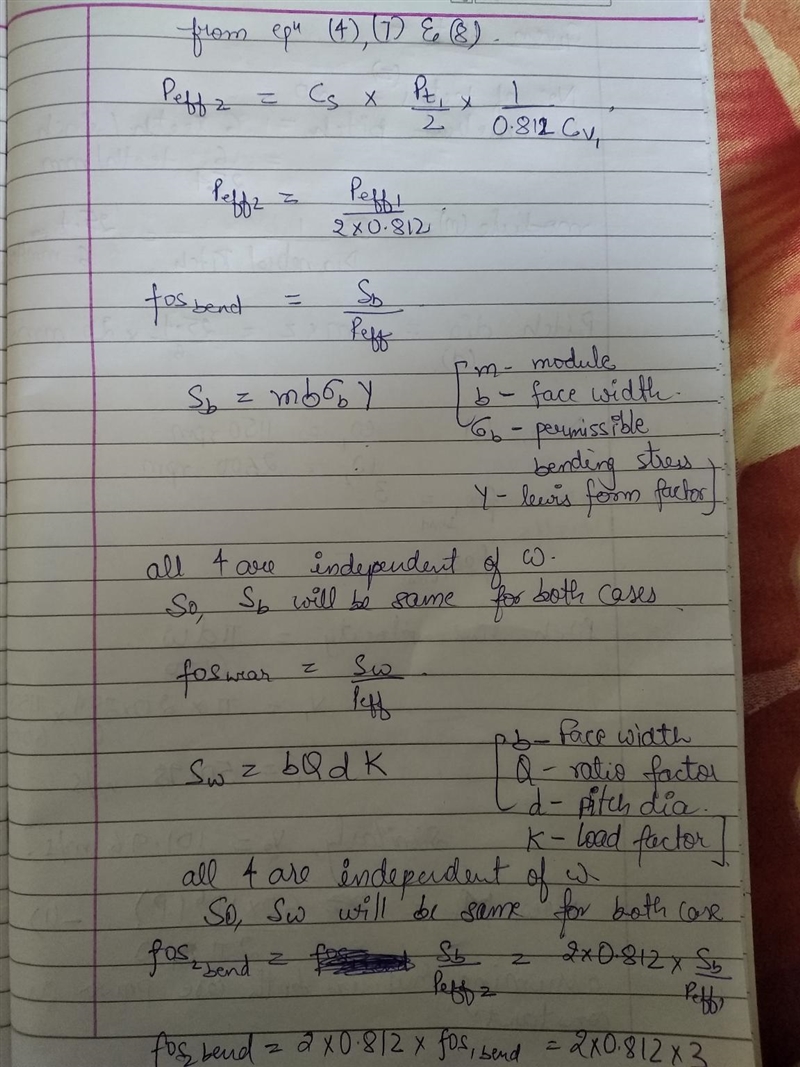 from eqn (4), (7) & (8).
Peff2 = Cs × Pt1/2 × 1/(0.812 Cv1)
Peff2 = Peff1/(2×0.812)
fos bend = Sb/Peff
Sb = mbσb Y
[m - module
b - face width.
σb - permissible
bending stress
Y - lewis form factor]
all 4 are independent of ω.
So, Sb will be same for both cases.
fos wear = Sw/Peff.
Sw = bQdK
[b - Face width
Q - ratio factor
d - pitch dia.
K - Load factor]
all 4 are independent of ω.
So, Sw will be same for both case
fos2 bend = Sb/Peff2 = 2×0.812 × Sb/Peff1
fos2 bend = 2×0.812 × fos1 bend = 2×0.812×3